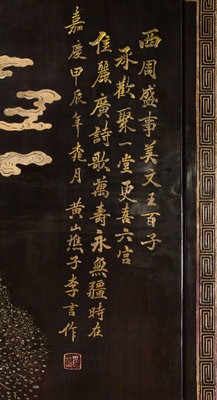 西周盛事美文王百子
承歡聚一堂更喜六宮
佳麗廣詩歌萬壽永無疆時在
嘉慶甲辰年桃月黃山樵子李言作